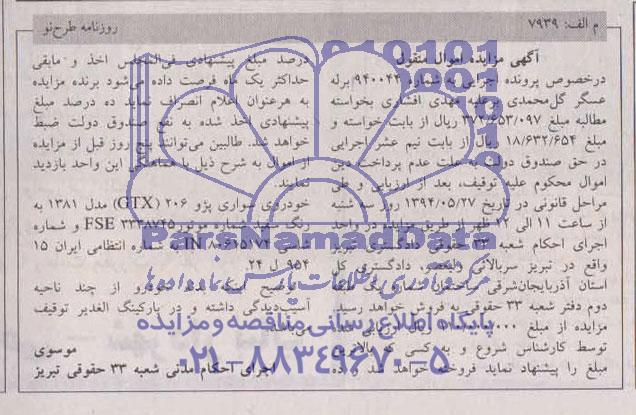 م الف: ۷۹۳۹
روزنامه طرح‌نو
آگهی مزایده اموال منقول
درخصوص پرونده اجرایی به شماره ۹۴۰۰۴۳ برله
عسگر گل‌محمدی برعلیه مهدی افشاری بخواسته
مطالبه مبلغ ۳۷۲/۶۵۳/۰۹۷ ریال از بابت خواسته و
مبلغ ۱۸/۶۳۲/۶۵۴ ریال از بابت نیم عشر اجرایی
در حق صندوق دولت به علت عدم پرداخت دین
اموال محکوم علیه توقیف، بعد از ارزیابی و طی
مراحل قانونی در تاریخ ۱۳۹۴/۰۵/۲۷ روز سه شنبه
از ساعت ۱۱ الی ۱۲ ظهر از طریق مزایده در واحد
اجرای احکام شعبه ۳۳ حقوقی دادگستری تبریز
واقع در تبریز سربالائی ولیعصر، دادگستری کل
استان آذربایجان‌شرقی ساختمان شماره یک طبقه
دوم دفتر شعبه ۳۳ حقوقی به فروش خواهد رسید.
مزایده از مبلغ ریال
توسط کارشناس شروع و به کسی که بالاترین
مبلغ را پیشنهاد نماید فروخته خواهد شد و ده
درصد مبلغ پیشنهادی فی‌المجلس اخذ و مابقی
حداکثر یک ماه فرصت داده می‌شود برنده مزایده
به هرعنوان اعلام انصراف نماید ده درصد مبلغ
پیشنهادی اخذ شده به نفع صندوق دولت ضبط
خواهد شد. طالبین می‌توانند پنج روز قبل از مزایده
از اموال به شرح ذیل با هماهنگی این واحد بازدید
نمایند.
خودروی سواری پژو ۲۰۶ (GTX) مدل ۱۳۸۱ به
رنگ سفید شماره موتور FSE ۳۳۳۸۷۴۵ و شماره
شاسی IN ۸۰۶۱۵۱۷۲ به شماره انتظامی ایران ۱۵
۹۵۴ ل ۲۴
توضیح اینکه بدنه خودرو از چند ناحیه
آسیب‌دیدگی داشته و در پارکینگ الغدیر توقیف
می‌باشد.
موسوی
اجرای احکام مدنی شعبه ۳۳ حقوقی تبریز
ParsNamadData
مرکز فرآوری اطلاعات پارس نماد داده‌ها
پایگاه اطلاع رسانی مناقصه و مزایده
۰۲۱-۸۸۳۴۹۶۷۰-۵